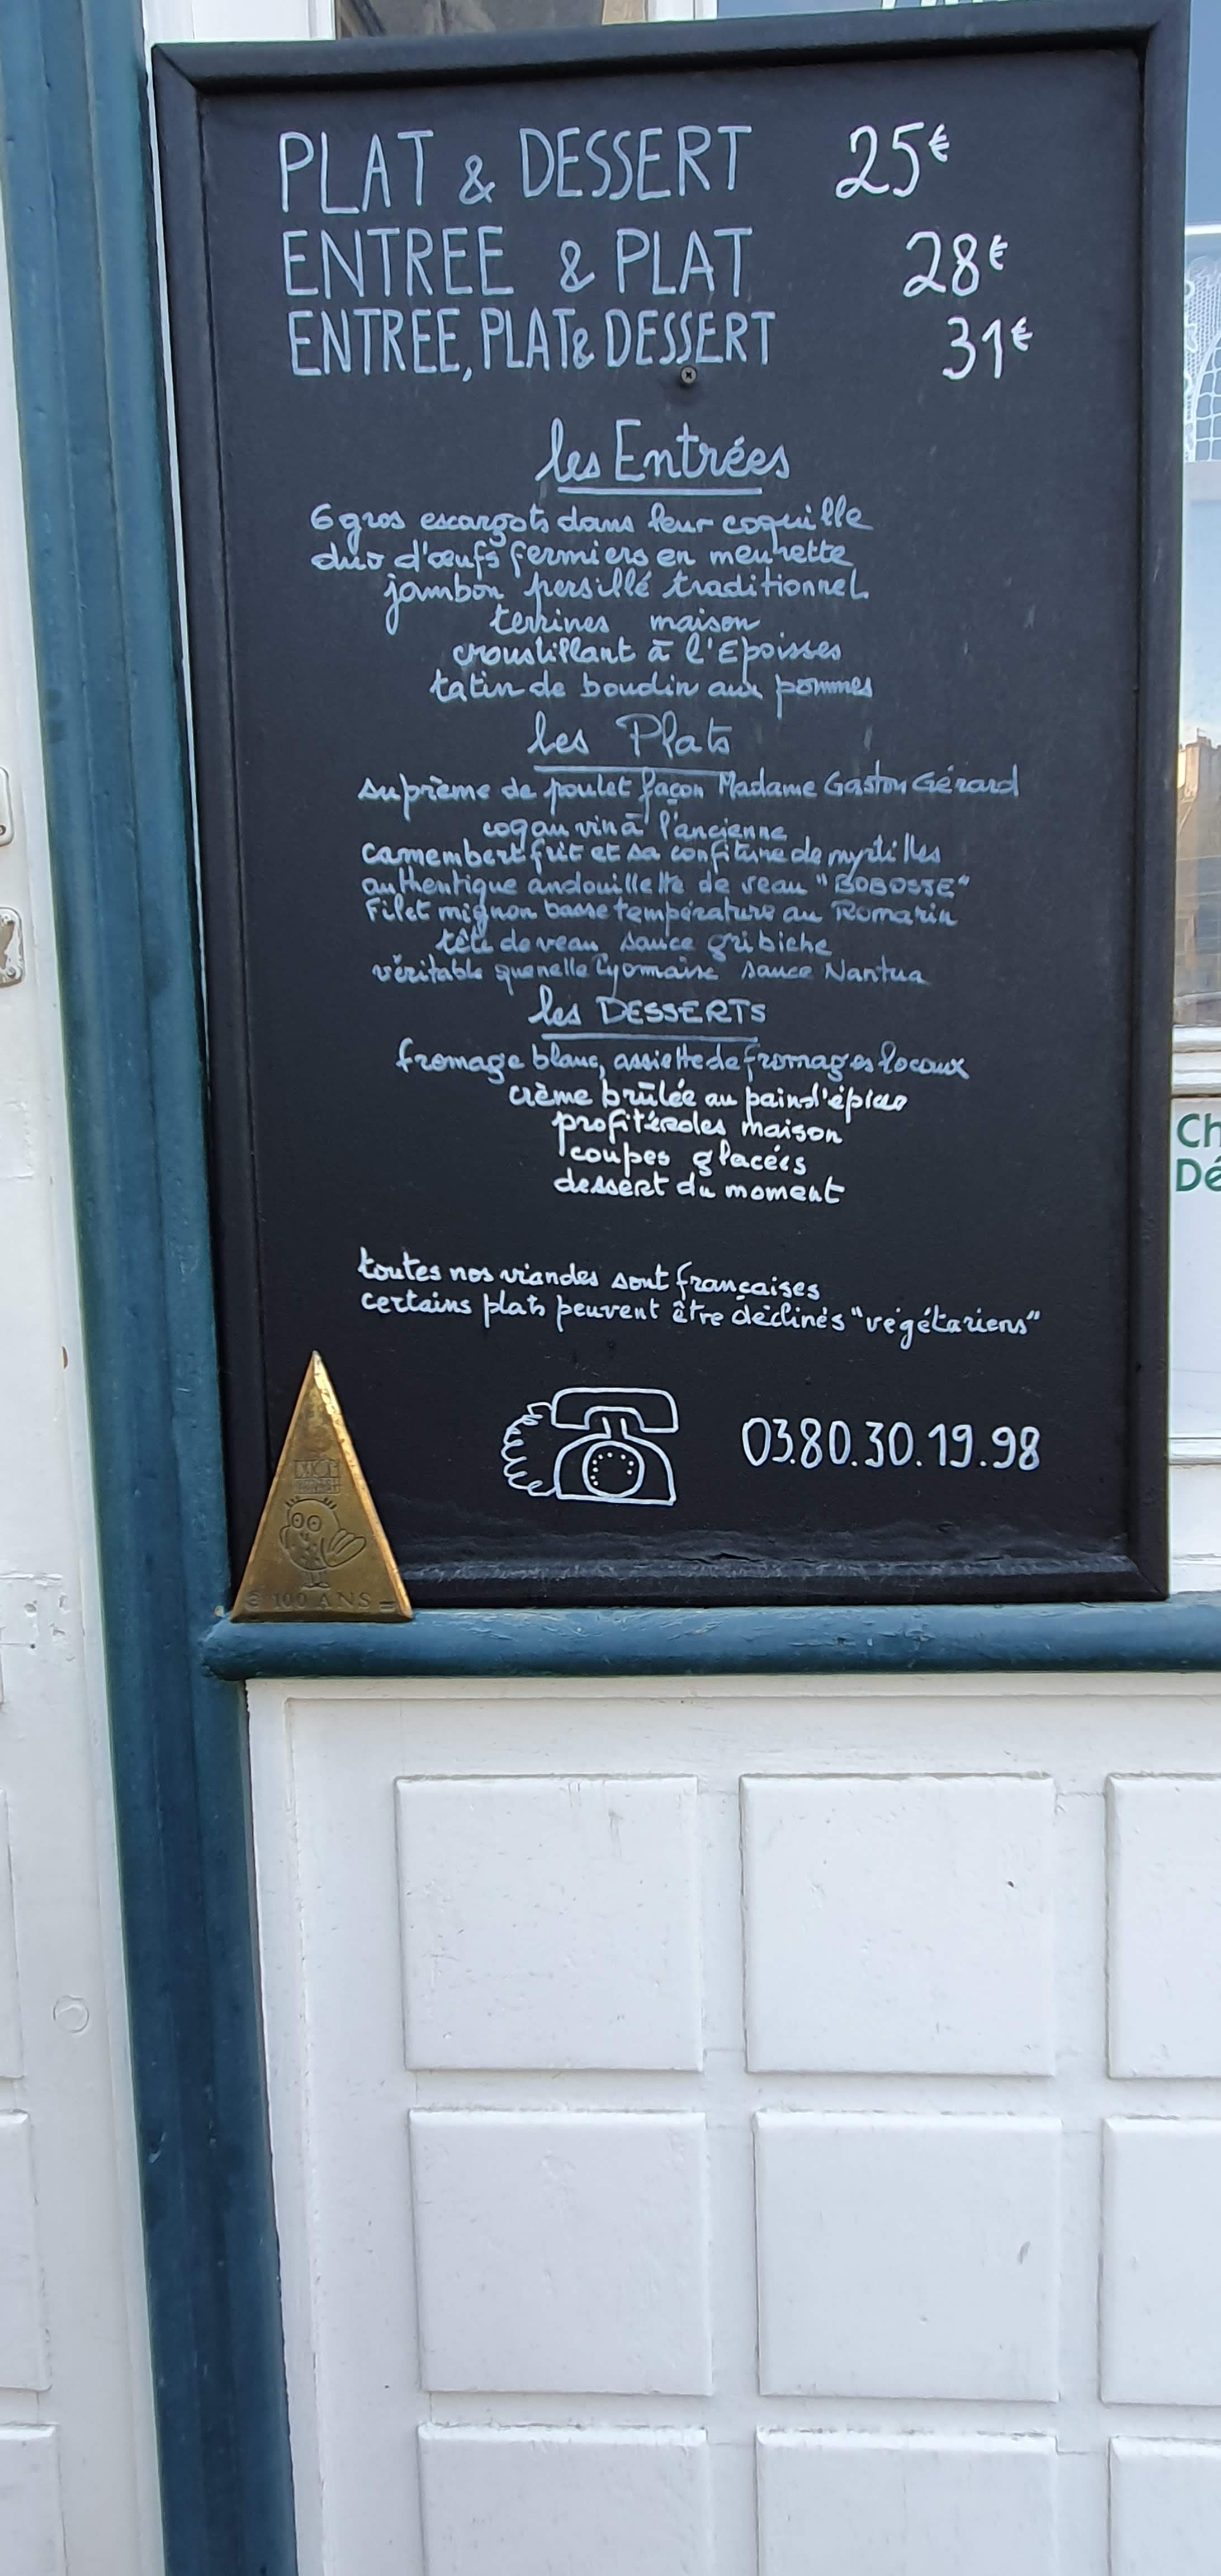 PLAT & DESSERT 25€
ENTREE & PLAT 28€
ENTREE, PLAT & DESSERT 31€
les Entrées
6 gros escargots dans leur coquille
duo d'œufs fermiers en meurette
jambon persillé traditionnel
terrines maison
croustillant à l'Epoisses
tatin de boudin aux pommes
les Plats
suprème de poulet façon Madame Gaston Gérard
coq au vin à l'ancienne
camembert frit et sa confiture de myrtilles
authentique andouillette de veau "BOBOSSE"
Filet mignon basse température au Romarin
tête de veau sauce gribiche
véritable quenelle lyonnaise sauce Nantua
les DESSERTS
fromage blanc, assiette de fromages locaux
crème brûlée au pain d'épices
profitéroles maison
coupes glacées
dessert du moment
toutes nos viandes sont françaises
certains plats peuvent être déclinés "végétariens"
03.80.30.19.98
100 ANS
Ch
Dé